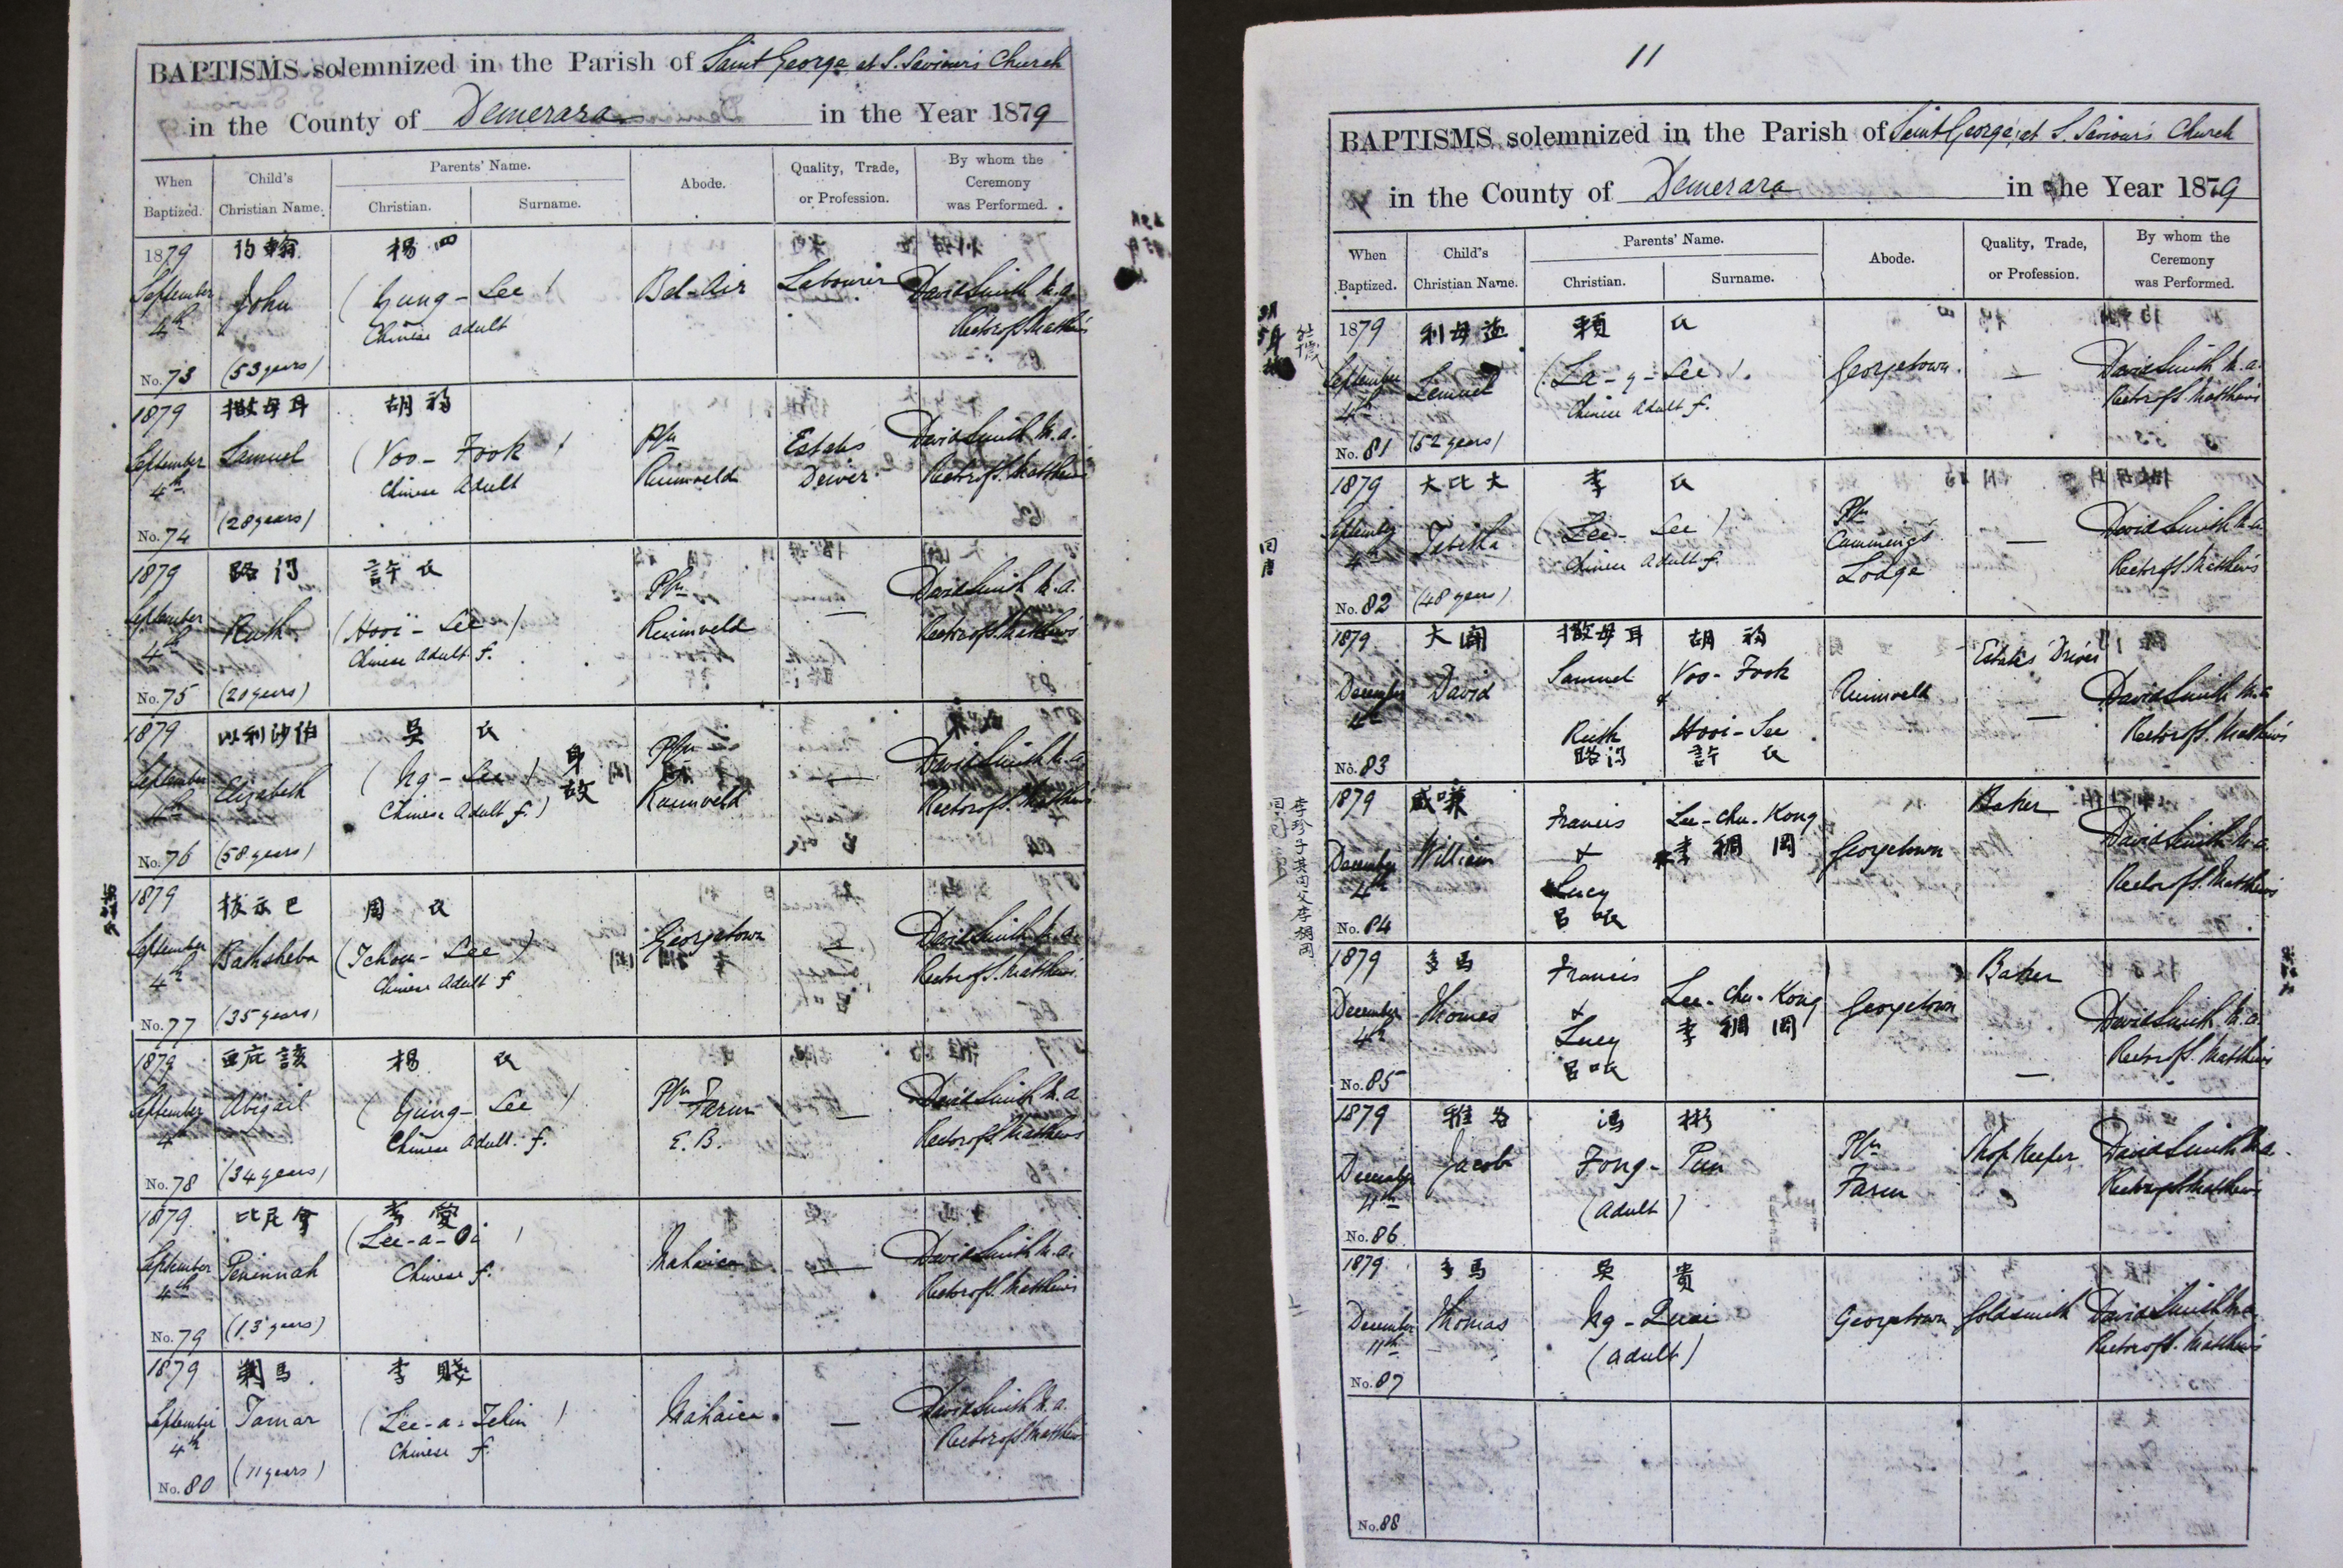 BAPTISMS solemnized in the Parish of Saint George, at S. Saviour's Church
in the County of Demerara in the Year 1879
When Baptized. Child's Christian Name. Parents' Name. Christian. Surname. Abode. Quality, Trade, or Profession. By whom the Ceremony was Performed.
1879 約翰 楊四
September 4th John (Yung-Lee) Bel-Air Labourer David Smith M.A.
Chinese adult Rector of S. Matthew's
No. 73 (53 years)
1879 撒母耳 胡福
September 4th Samuel (Voo-Fook) Pln Ruimveld Estate's Driver David Smith M.A.
Chinese Adult Rector of S. Matthew's
No. 74 (28 years)
1879 路得 許氏
September 4th Ruth (Hooi-Lee) Pln Ruimveld — David Smith M.A.
Chinese Adult f. Rector of S. Matthew's
No. 75 (20 years)
1879 以利沙伯 吳氏
September 4th Elizabeth (Ng-Lee) 身故 Pln Ruimveld — David Smith M.A.
Chinese Adult f.) Rector of S. Matthew's
No. 76 (58 years)
1879 拔示巴 周氏
September 4th Bathsheba (Tchou-Lee) Georgetown — David Smith M.A.
Chinese Adult f Rector of S. Matthew's
No. 77 (35 years)
1879 亞庇該 楊氏
September 4th Abigail (Yung-Lee) Pln Farm E.B. — David Smith M.A.
Chinese Adult. f. Rector of S. Matthew's
No. 78 (34 years)
1879 比尼拿 李愛
September 4th Peninnah (Lee-a-Oi) Mahaica — David Smith M.A.
Chinese f. Rector of S. Matthew's
No. 79 (13 years)
1879 馬 李
September 4th Tamar (Lee-a-) Mahaica. — David Smith M.A.
Chinese f. Rector of S. Matthew's
No. 80 (11 years)
11
BAPTISMS solemnized in the Parish of Saint George, at S. Saviour's Church
in the County of Demerara in the Year 1879
When Baptized. Child's Christian Name. Parents' Name. Christian. Surname. Abode. Quality, Trade, or Profession. By whom the Ceremony was Performed.
1879 利母益 賴氏
September 4th Lemuel (La-y-Lee). Georgetown. — David Smith M.A.
Chinese Adult f. Rector of S. Matthew's
No. 81 (52 years)
1879 大比大 李氏
September 4th Tabitha (Lee-Lee) Pln Cumming's Lodge — David Smith M.A.
Chinese Adult f. Rector of S. Matthew's
No. 82 (48 years)
1879 大闢 撒母耳 胡福 Estate's Driver
December 4th David Samuel & Voo-Fook Ruimveld David Smith M.A.
Ruth Hooi-Lee — Rector of S. Matthew's
No. 83 路得 許氏
1879 威嗛 Francis Lee-chu-Kong Baker
December 4th William & 李稠岡 Georgetown David Smith M.A.
Lucy Rector of S. Matthew's
No. 84 呂氏
1879 多馬 Francis Baker
December 4th Thomas & Lee-chu-Kong Georgetown David Smith M.A.
Lucy 李稠岡 Rector of S. Matthew's
No. 85 呂氏 —
1879 雅各 馮彬
December 4th Jacob Fong-Pun Pln Farm Shop Keeper David Smith M.A.
(Adult) Rector of S. Matthew's
No. 86
1879 多馬 吳貴
December 11th Thomas Ng-Quai Georgetown Goldsmith David Smith M.A.
(Adult) Rector of S. Matthew's
No. 87
No. 88